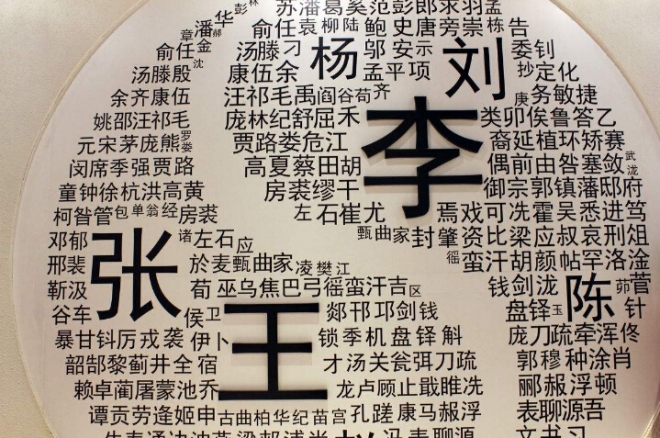 苏潘葛奚范彭郎
华 俞任袁柳陆鲍史唐旁崇栋告
俞任金 汤滕刁 杨 邬安示 刘 委钊
汤滕殷 康伍余 孟平项 抄定化
余齐康伍 汪祁毛禹阎谷茹齐 庚务敏捷
姚邵汪祁毛 庞林纪舒屈禾 李 类卯俟鲁答乙
元宋茅庞熊罗娄 贾路娄危江 裔延植环矫赛
闵席季强贾路 高夏蔡田胡 偶前由昝塞敛武
童钟徐杭洪高黄 房裘缪干 御宗郭镇藩邸府
柯昝管包单翁经房裘 左石崔尤 焉戏可冼霍吴悉进笃
邓郁 张 诸左石应 甄曲家封肇资比梁应叔哀刑俎
邢裴 於麻甄曲家凌樊江 徭蛮汗胡颜帖罕洛淦
靳汲 荀巫乌焦巴弓徭蛮汗吉区 钱剑泷 陈 茆菅
谷车 侯卫 王 郯邗邛剑钱 盘铎玉 针
暴甘钭厉戎袭伊卜 锁季机盘铎斛 庞刀疏牵浑佟
韶郜黎蓟井全宿 才汤关瓮弭刀疏 郭穆种涂肖
赖卓蔺屠蒙池乔 龙卢顾止戢睢冼 郦郝浮顿
谭贡劳逄姬申古曲柏华纪苗宫孔蹉康马郝浮 表聊源吾